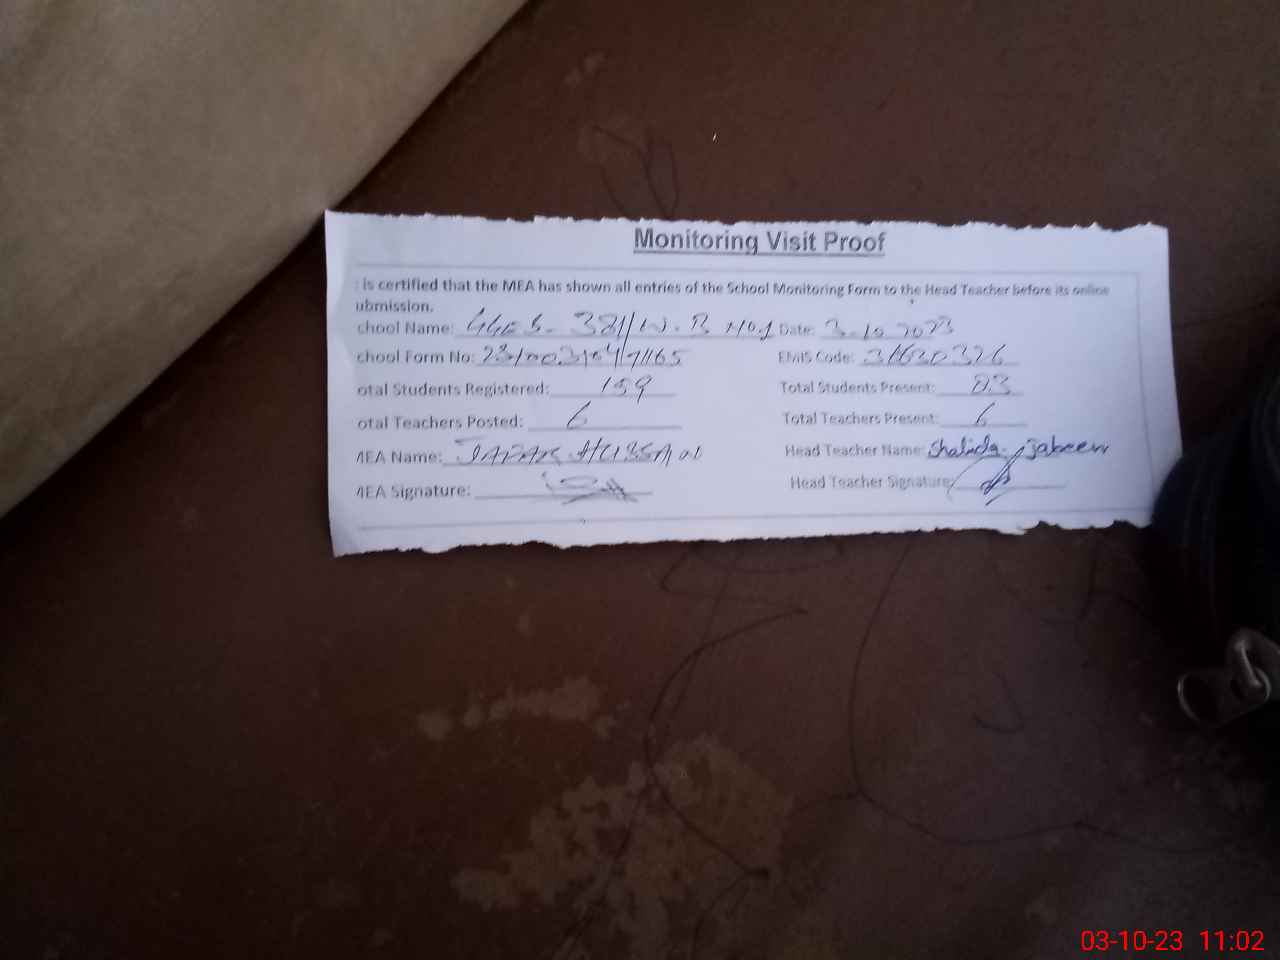 Monitoring Visit Proof
: is certified that the MEA has shown all entries of the School Monitoring Form to the Head Teacher before its online
ubmission.
chool Name: GGES. 381/W.B No1 Date: 3-10-2023
chool Form No: EMIS Code: 31630326
otal Students Registered: 159 Total Students Present: 83
otal Teachers Posted: 6 Total Teachers Present: 6
MEA Name: JAFAR HUSSAIN Head Teacher Name: Shahida
MEA Signature: Head Teacher Signature:
03-10-23 11:02